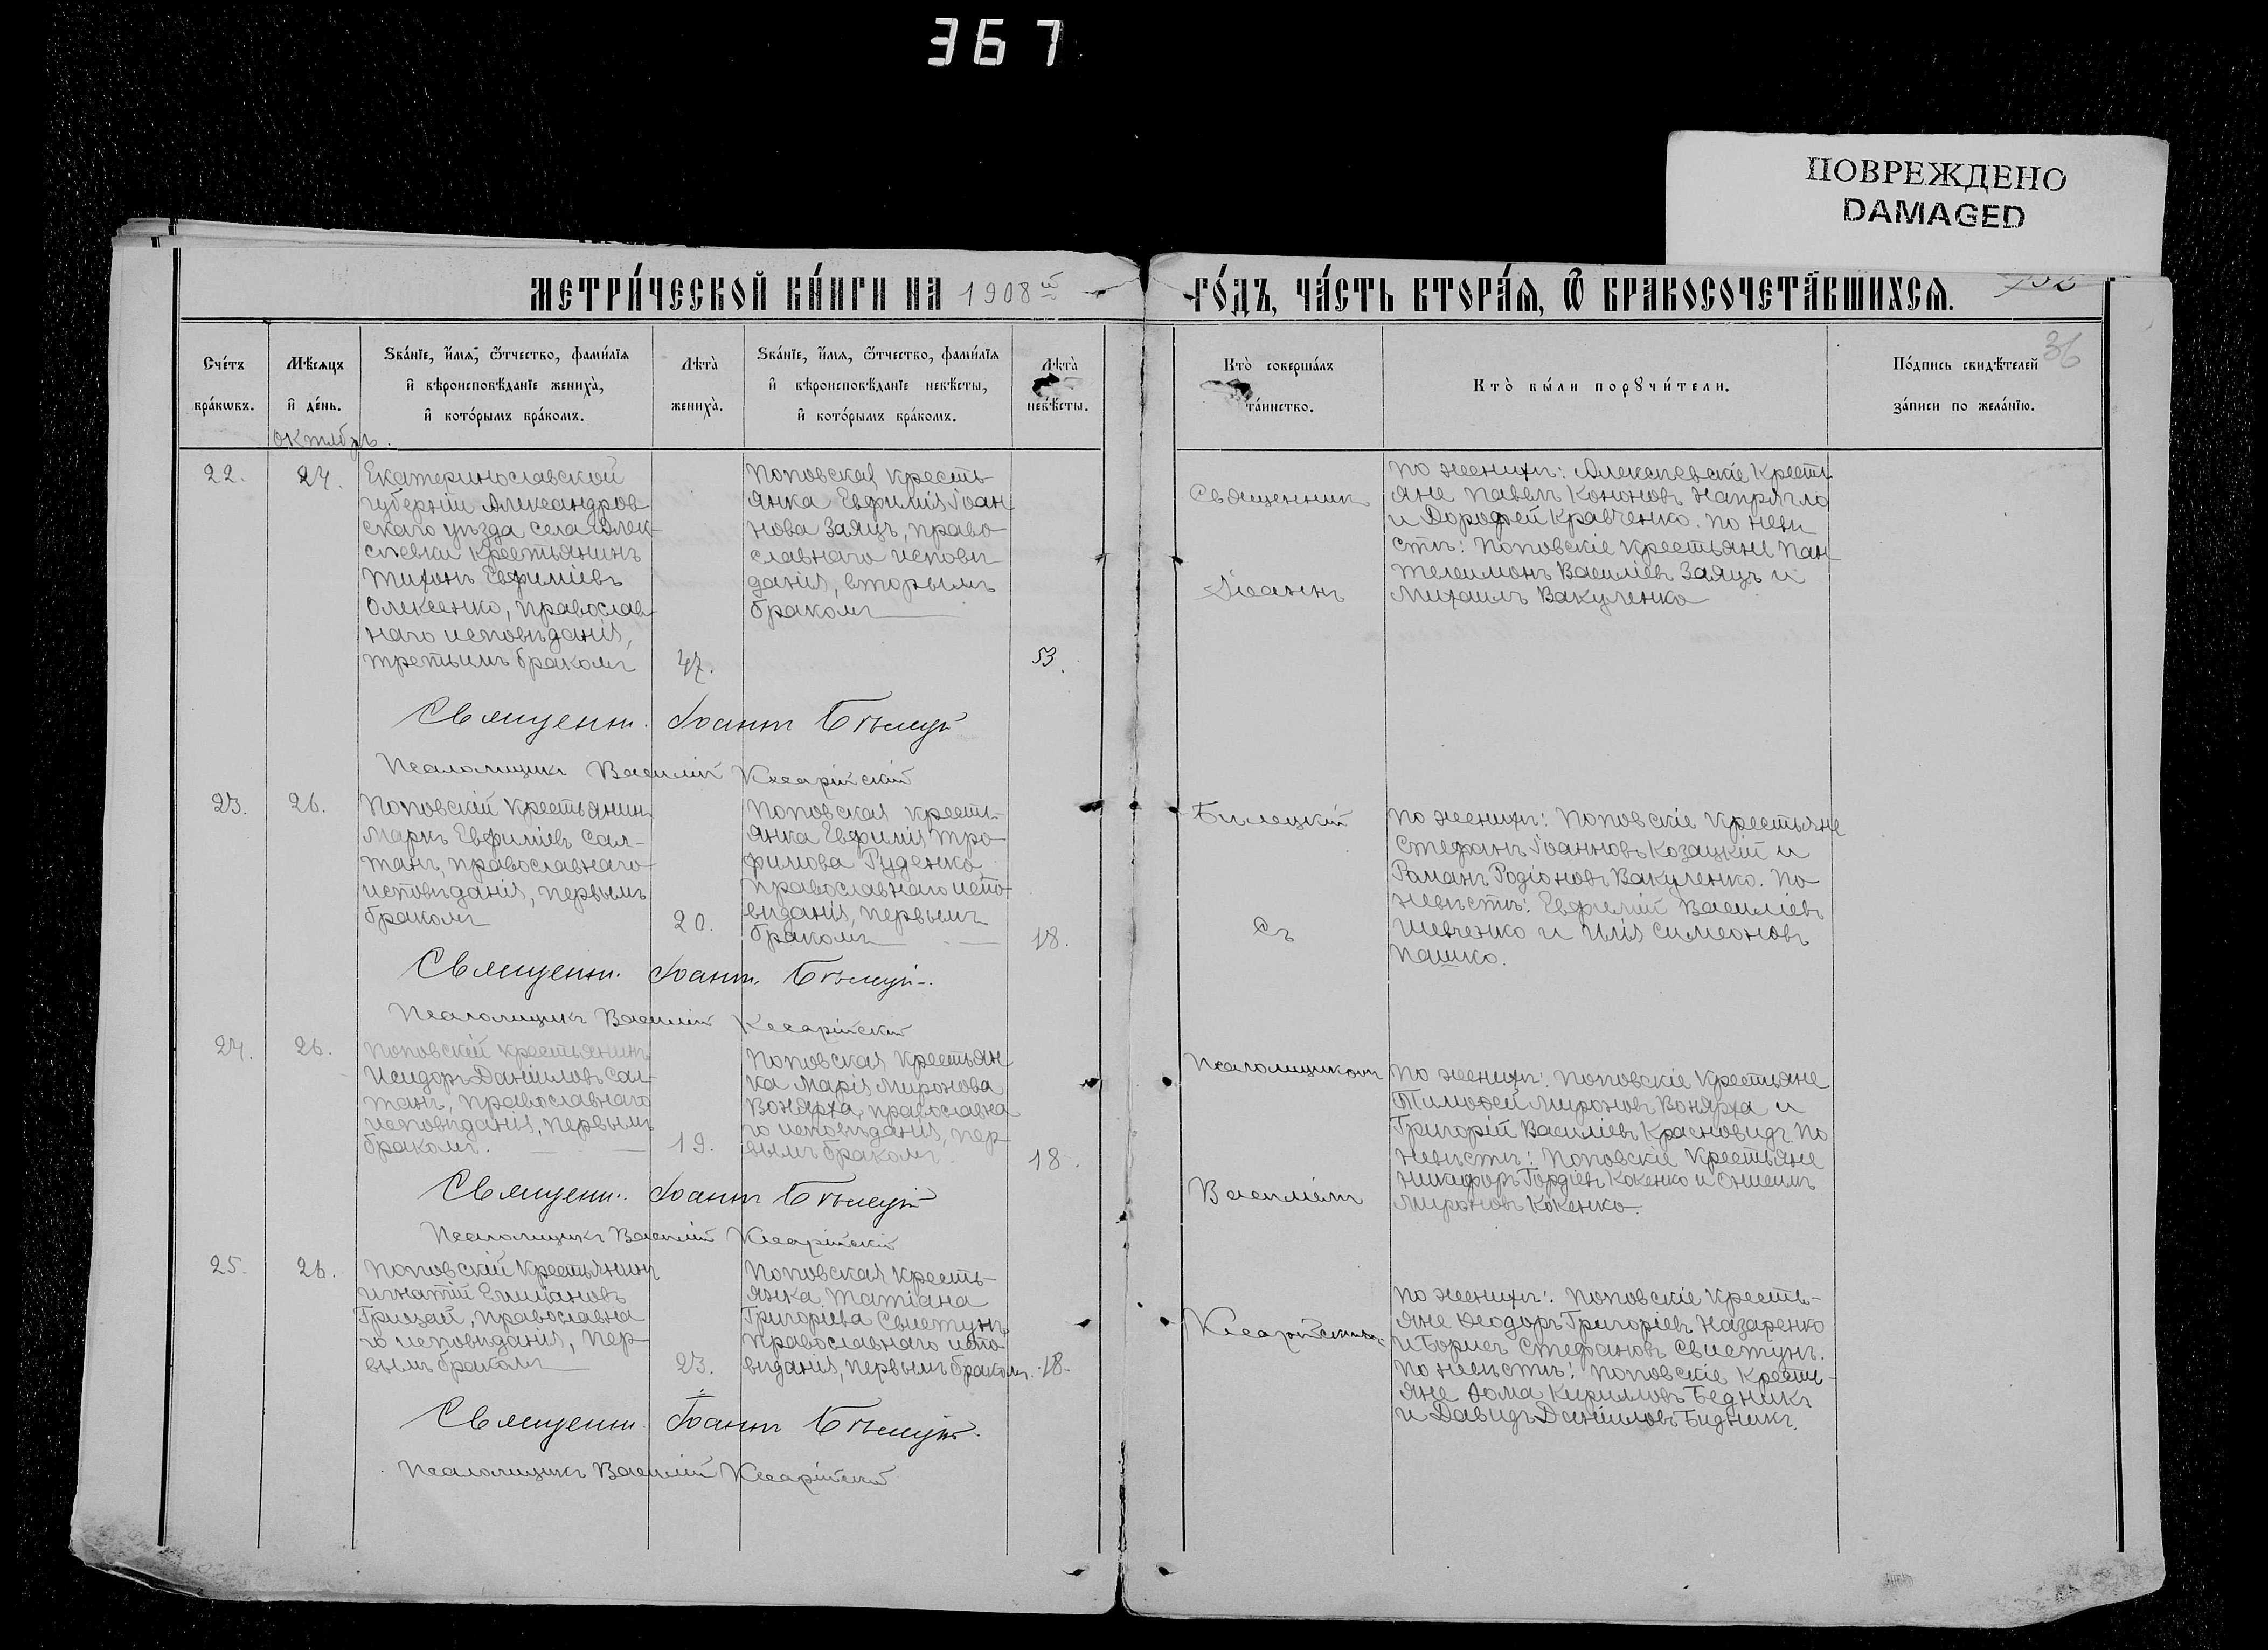 367
ПОВРЕЖДЕНО
DAMAGED
МЕТРИ́ЧЕСКОЙ КНИ́ГИ НА 1908й
ГО́ДЪ, ЧА́СТЬ ВТОРА́Я, Ѿ БРАКОСОЧЕТА́ВШИХСЯ.
36
Сче́тъ бра́кωвъ.
Мѣ́сяцъ и҆ де́нь.
Ѕва́нїе, и҆́мя, ѻ҆́тчество, фами́лїя
и҆ вѣроисповѣ́данїе жениха̀,
и҆ кото́рымъ бра́комъ.
Лѣта̀ жениха̀.
Ѕва́нїе, и҆́мя, ѻ҆́тчество, фами́лїя
и҆ вѣроисповѣ́данїе невѣ́сты,
и҆ кото́рымъ бра́комъ.
Лѣта̀ невѣ́сты.
Кто̀ соверша́лъ та́инство.
Кто̀ бы́ли порꙋчи́тели.
По́дпись свидѣ́телей за́писи по жела́нїю.
октябрь.
22.
24.
Екатеринославской
губерніи Александров
скаго уѣзда села Алек-
сѣевки крестьянинъ
Тихонъ Евфиміевъ
Олексенко, православ
наго исповѣданія,
третьимъ бракомъ
47.
Поповская кресть-
янка Евфимія Іоан
нова Заяцъ, право
славнаго исповѣ
данія, вторымъ
бракомъ
53.
Священник
Іоаннъ
по женихѣ: Алексѣевскіе Крестъ
яне Павелъ Кононовъ Напрягло
и Дорофей Кравченко. по невѣ
стѣ: Поповскіе крестьяне Пан-
телеимонъ Василіевъ Заяцъ и
Михаилъ Вакуленко
Священ. Іоаннъ
Псаломщикъ Василій Кесарійскій
23.
26.
Поповскій крестьянин
Маркъ Евфиміевъ Сал-
танъ, православнаго
исповѣданія, первымъ
бракомъ
20.
Поповская кресть-
янка Евфимія Тро-
фимова Руденко
православнаго испо-
вѣданія, первымъ
бракомъ
18.
Билецкій
съ
по женихѣ: Поповскіе крестьяне
Стефанъ Іоанновъ Козацкій и
Романъ Родіоновъ Вакуленко. По
невѣстѣ: Евфимій Василіевъ
Шевченко и Илія Симеоновъ
Пашко.
Священ. Іоанн.
Псаломщикъ Василій Кесарійскій
24.
26.
Поповскій крестьянинъ
Исидоръ Даніиловъ Сал-
танъ, православнаго
исповѣданія, первымъ
бракомъ.
19.
Поповская крестьян
ка Марія Миронова
Вонярха, православна
го исповѣданія, пер-
вымъ бракомъ.
18.
Псаломщикомъ
Василіемъ
по женихѣ: Поповскіе крестьяне
Тимофей Мироновъ Вонярха и
Григорій Василіевъ Красновидъ. По
невѣстѣ: Поповскіе крестьяне
Никифоръ Гордіевъ Кокенко и Онисимъ
Мироновъ Кокенко.
Священ. Іоаннъ
Псаломщикъ Василій Кесарійскій
25.
26.
Поповскій крестьянинъ
Игнатій Емиліановъ
Грицай, православна
го исповѣданія, пер-
вымъ бракомъ
23.
Поповская кресть-
янка Татіана
Григоріева Свистунъ,
православнаго испо
вѣданія, первымъ бракомъ.
18.
Кесарійскимъ
по женихѣ: Поповскіе кресть-
яне Ѳеодоръ Григоріевъ Назаренко
и Борисъ Стефановъ Свистунъ.
по невѣстѣ: Поповскіе кресть-
яне Ѳома Кирилловъ Бедникъ
и Давидъ Даніиловъ Бидникъ.
Священ. Іоаннъ
Псаломщикъ Василій Кесарійскій